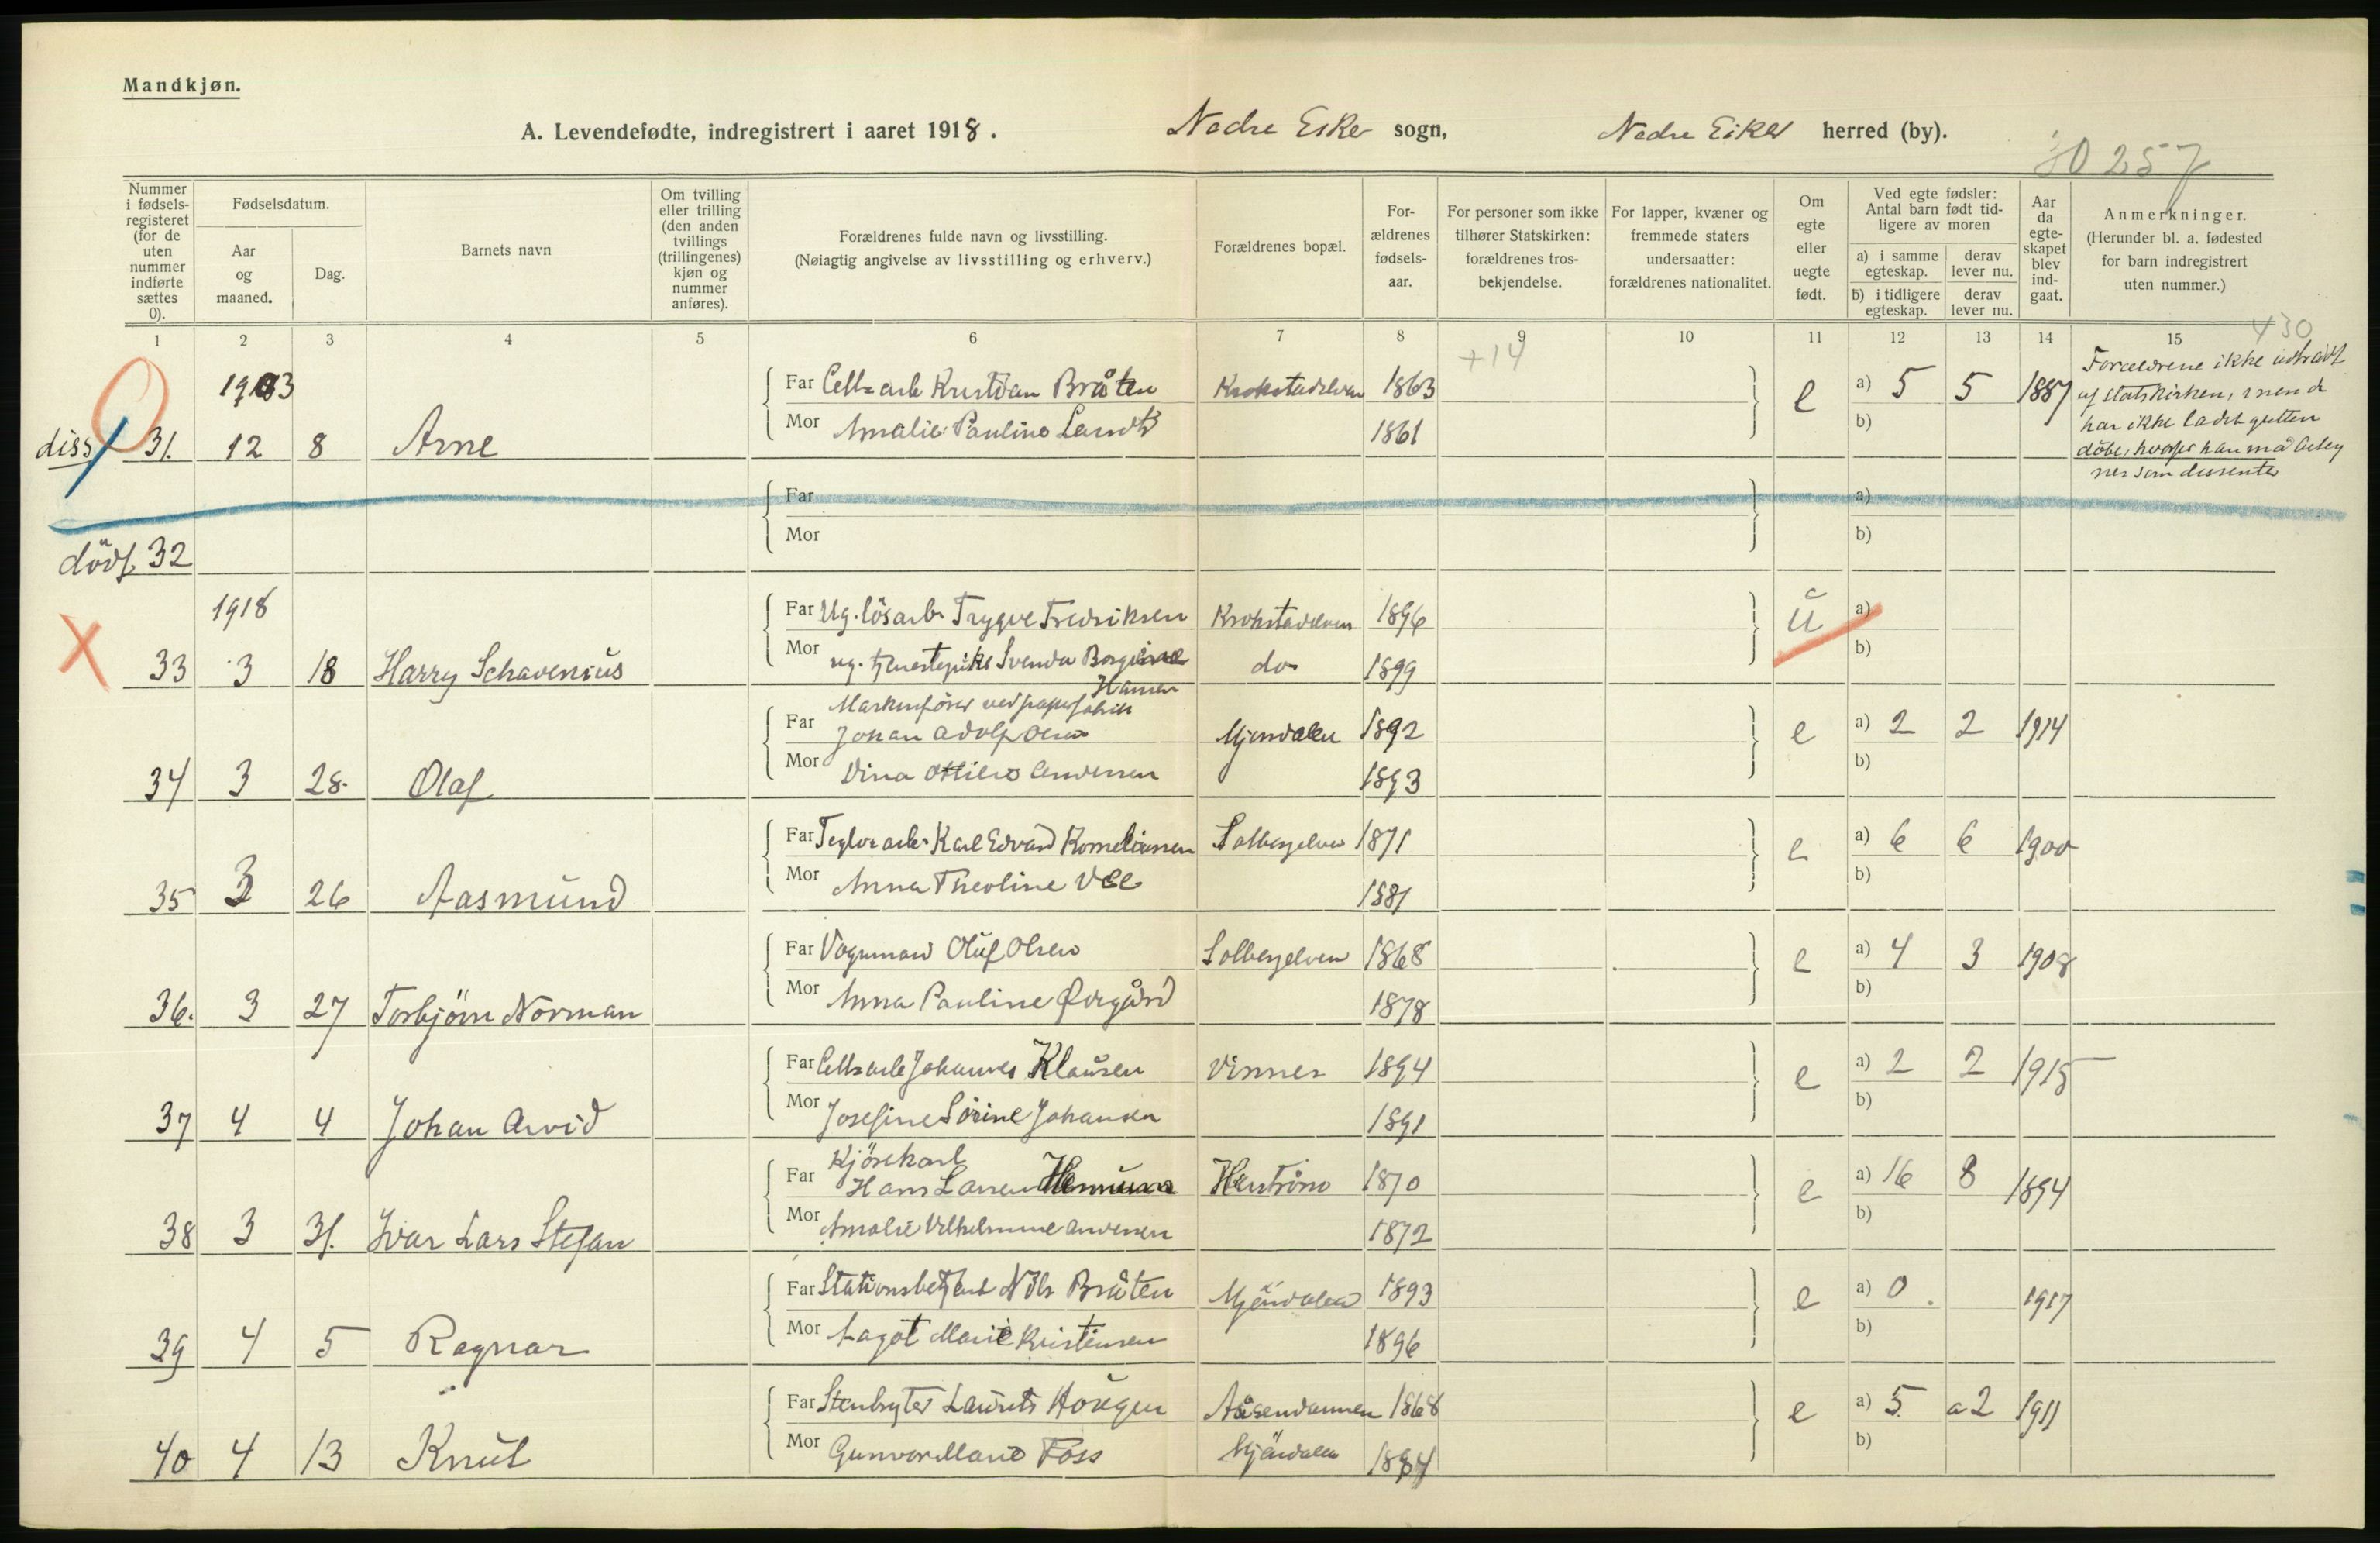 Mandkjøn.
A. Levendefødte, indregistrert i aaret 1918. Nedre Eiker sogn, Nedre Eiker herred (by).
30257
Nummer i fødsels-registeret (for de uten nummer indførte sættes 0).
Fødselsdatum.
Aar og maaned.
Dag.
Barnets navn
Om tvilling eller trilling (den anden tvillings (trillingenes) kjøn og nummer anføres).
Forældrenes fulde navn og livsstilling.
(Nøiagtig angivelse av livsstilling og erhverv.)
Forældrenes bopæl.
For-ældrenes fødsels-aar.
For personer som ikke tilhører Statskirken: forældrenes tros-bekjendelse.
For lapper, kvæner og fremmede staters undersaatter: forældrenes nationalitet.
Om egte eller uegte født.
Ved egte fødsler: Antal barn født tid-ligere av moren
a) i samme egteskap.
derav lever nu.
b) i tidligere egteskap.
derav lever nu.
Aar da egte-skapet blev ind-gaat.
Anmerkninger.
(Herunder bl. a. fødested for barn indregistrert uten nummer.)
1 2 3 4 5 6 7 8 9 10 11 12 13 14 15
+14 430
1903 Far Kristian Bråten Krokstadelven 1863 e a) 5 5 1887
diss 31. 12 8 Arne Mor Amalie Pauline 1861 b)
Forældrene ikke udtrådt
af statskirken, men de
har ikke ladet gutten
döbe, hvorfor han må
nes som dissenter
Far a)
dödf. 32 Mor b)
1918 Far Ug. lösarb. Trygve Fredriksen Krokstadelven 1896 u a)
X 33 3 18 Harry Schavenius Mor ug. tjenestepike Svenda Borgine do 1899 b)
Hansen
ved papirfabrik
Far Johan Adolf Olsen Mjöndalen 1892 e a) 2 2 1914
34 3 28. Olaf Mor Andersen 1893 b)
Far Karl Edvard Korneliussen Solbergelven 1871 e a) 6 6 1900
35 3 26 Aasmund Mor Anna Theoline 1881 b)
Far Vognmand Oluf Olsen Solbergelven 1868 e a) 4 3 1908
36. 3 27 Torbjörn Norman Mor Anna Pauline Øvregård 1878 b)
Far Johannes Klausen Vinnes 1894 e a) 2 2 1915
37 4 4 Johan Arvid Mor Josefine Sörine Johansen 1891 b)
Kjörekarl
Far Hans Larsen 1870 e a) 16 8 1894
38 3 31. Ivar Lars Stefan Mor Amalie Vilhelmine Andersen 1872 b)
Far Stationsbetjent Nils Bråten Mjöndalen 1893 e a) 0 1917
39 4 5 Ragnar Mor Marie Kristensen 1896 b)
Far Stenbryter Laurits Hougen 1868 e a) 5. a2 1911
40 4 13 Knut Mor Gunvor Marie Foss Mjöndalen b)